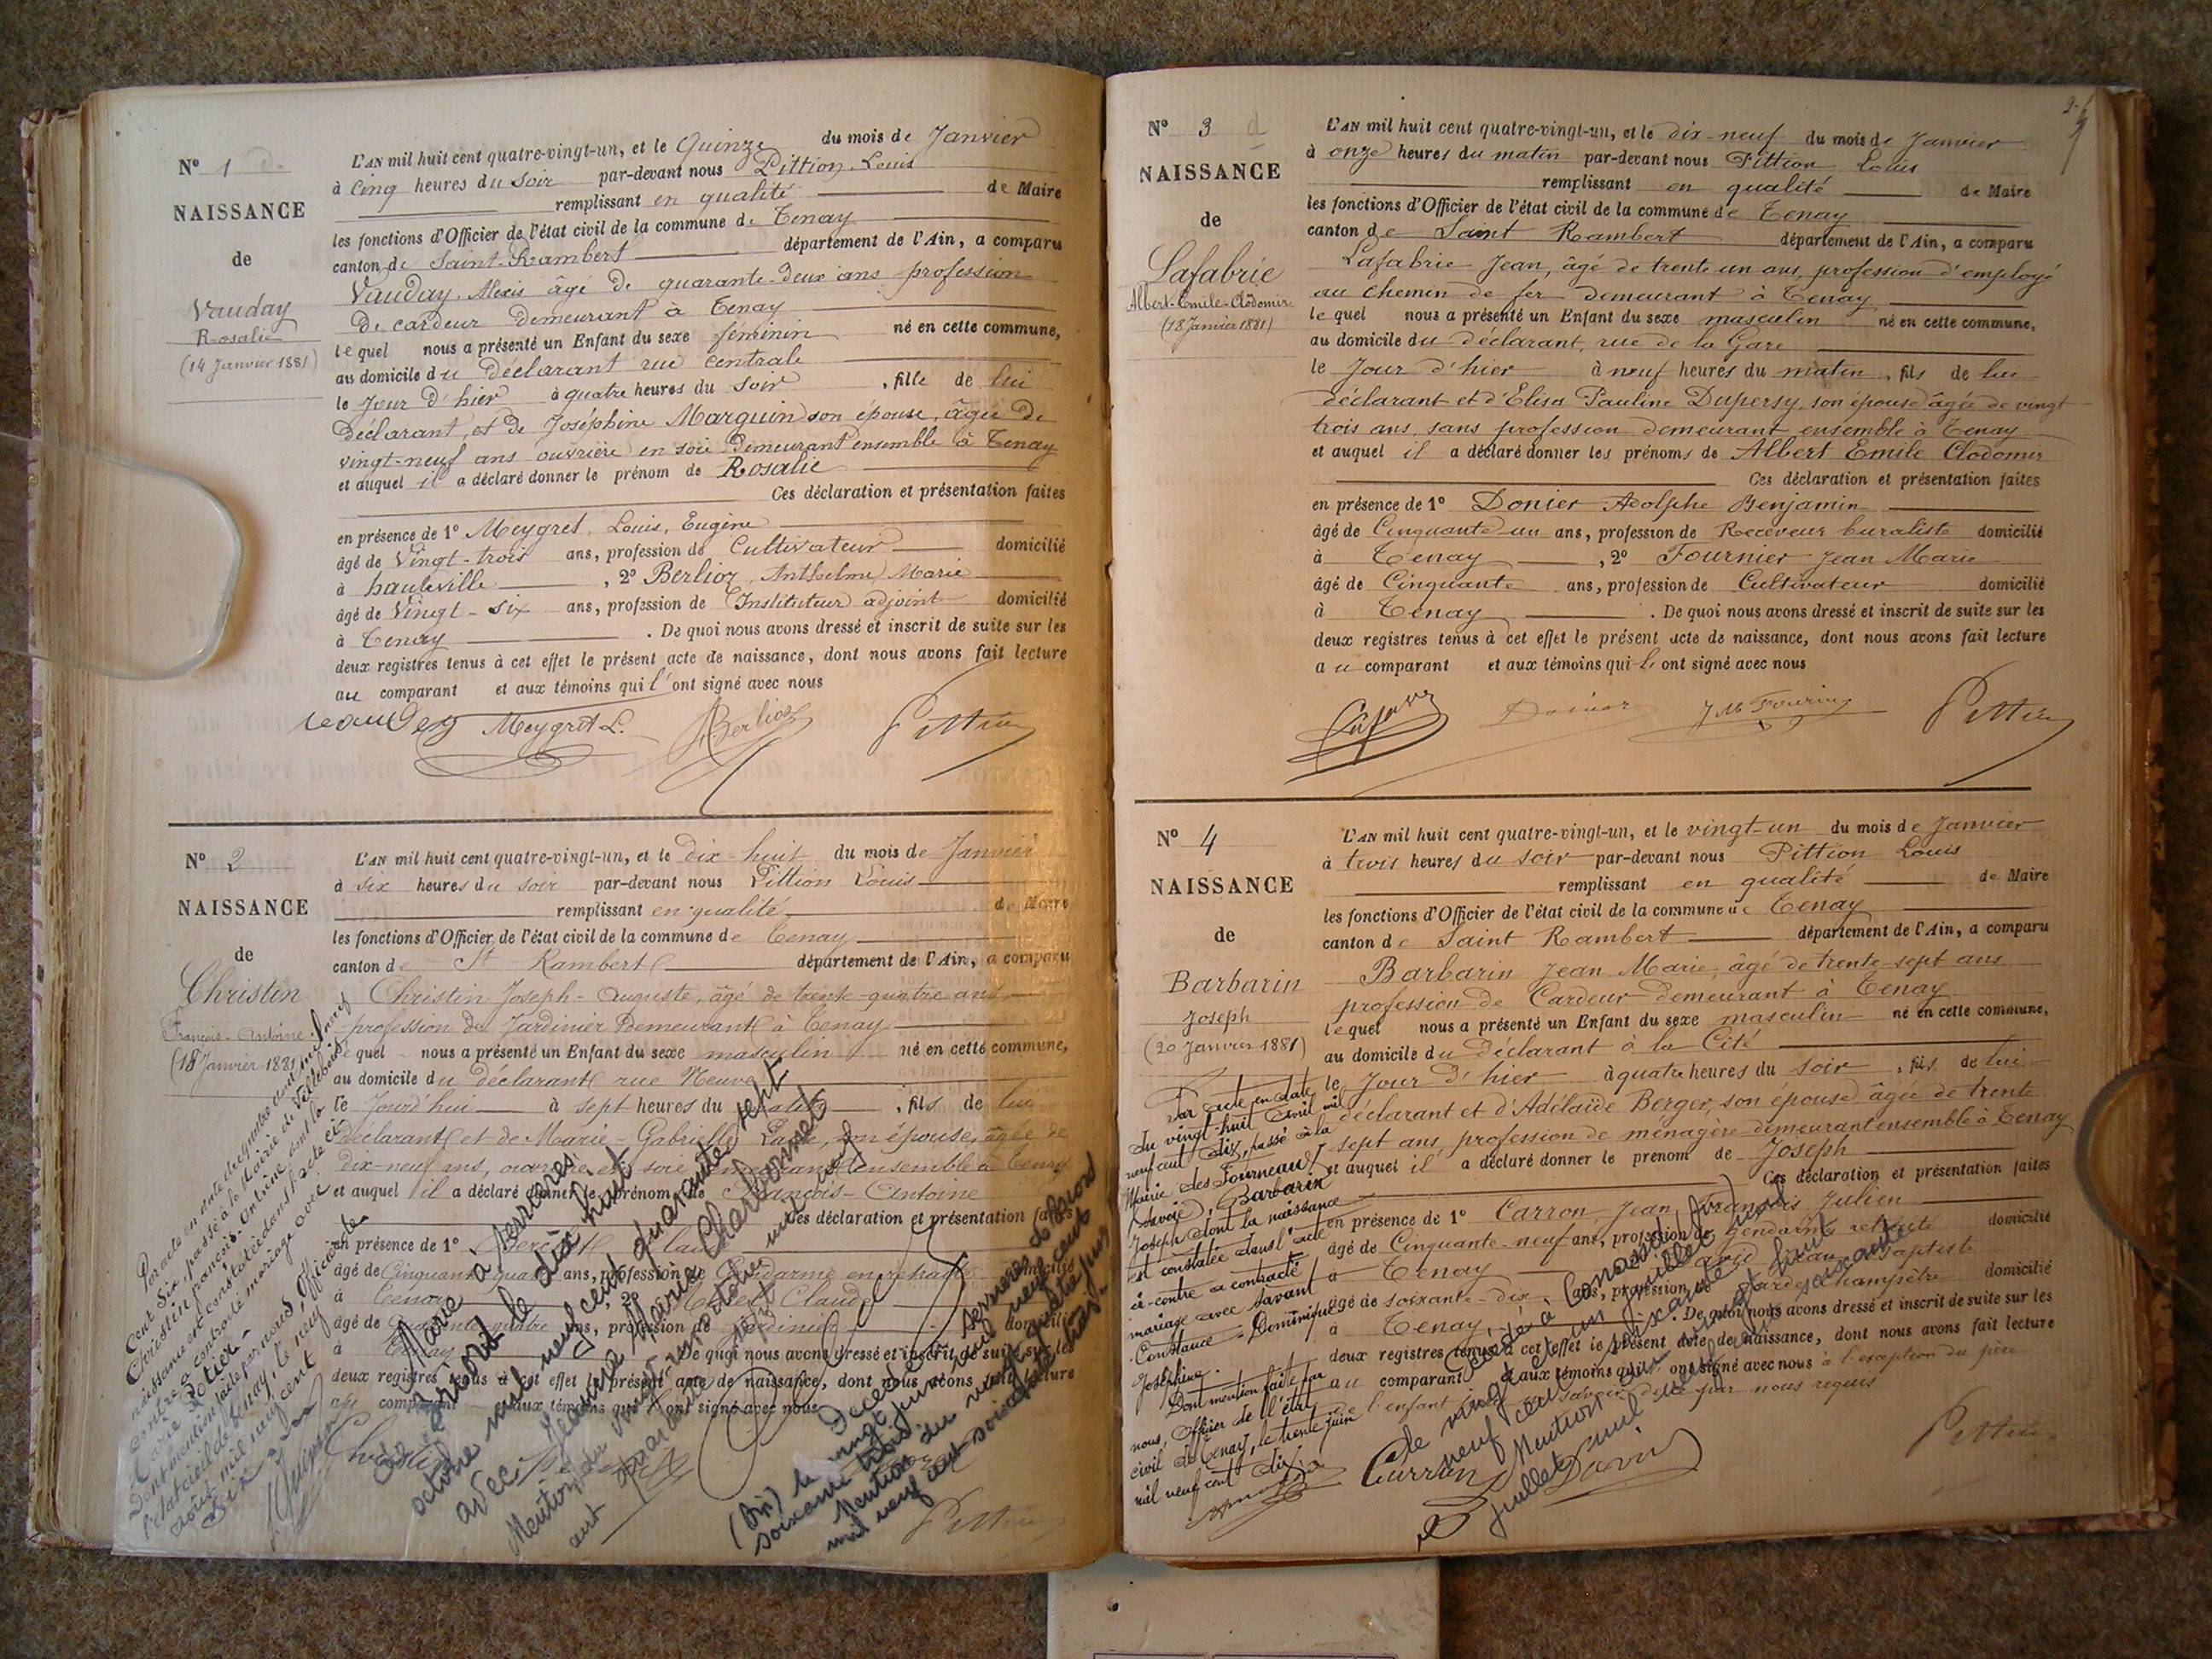 N° 1
NAISSANCE
de
Vauday
Rosalie
(14 Janvier 1881)
L'AN mil huit cent quatre-vingt-un, et le Quinze du mois de Janvier
à Cinq heures du soir par-devant nous Pittion Louis
remplissant en qualité de Maire
les fonctions d'Officier de l'état civil de la commune de Tenay
canton de Saint-Rambert département de l'Ain, a comparu
Vauday Alexis âgé de quarante-deux ans profession
de cardeur demeurant à Tenay
lequel nous a présenté un Enfant du sexe féminin né en cette commune,
au domicile du déclarant rue centrale
le Jour d'hier à quatre heures du soir, fille de lui
déclarant, et de Joséphine Marguin son épouse, âgée de
vingt-neuf ans ouvrière en soie demeurant ensemble à Tenay
et auquel il a déclaré donner le prénom de Rosalie
Ces déclaration et présentation faites
en présence de 1° Meygret, Louis, Eugène
âgé de Vingt-trois ans, profession de Cultivateur domicilié
à hauteville, 2° Berlioz, Anthelme Marie
âgé de Vingt-six ans, profession de Instituteur adjoint domicilié
à Tenay. De quoi nous avons dressé et inscrit de suite sur les
deux registres tenus à cet effet le présent acte de naissance, dont nous avons fait lecture
au comparant et aux témoins qui l'ont signé avec nous
Meygret L. Berlioz Pittion
N° 2
NAISSANCE
de
Christin
François-Antoine
(18 Janvier 1881)
L'AN mil huit cent quatre-vingt-un, et le dix-huit du mois de Janvier
à six heures du soir par-devant nous Pittion Louis
remplissant en qualité de Maire
les fonctions d'Officier de l'état civil de la commune de Tenay
canton de St Rambert département de l'Ain, a comparu
Christin Joseph-Auguste, âgé de trente-quatre ans
profession de Jardinier Demeurant à Tenay
lequel nous a présenté un Enfant du sexe masculin né en cette commune,
au domicile du déclarant rue Neuve
le Jourd'hui à sept heures du matin, fils de lui
déclarant et de Marie-Gabrielle son épouse, âgée de
dix-neuf ans, ouvrière en soie demeurant ensemble à Tenay
et auquel il a déclaré donner le prénom de François-Antoine
Ces déclaration et présentation faites
en présence de 1°
âgé de Cinquante quatre ans, profession de Gendarme en retraite domicilié
à Tenay, 2° Claude
âgé de quatre ans, profession de Jardinier domicilié
à Tenay. De quoi nous avons dressé et inscrit de suite sur les
deux registres tenus à cet effet le présent acte de naissance, dont nous avons fait lecture
au comparant et aux témoins qui l'ont signé avec nous
Christin
Pittion
Par acte en date du quatre août mil neuf
cent six, passé à la Mairie de Villebois
Christin François-Antoine dont la
naissance est constatée dans l'acte ci-
contre a contracté mariage avec
Marie
Dont mention faite par nous, Officier de
l'état civil de Tenay, le neuf
août mil neuf cent
six
Marié à Serrières
de Briord le dix huit
octobre mil neuf cent quarante sept
avec Jeanne Marie Charbonnet
Mention du vingt
Décédé à Serrières de Briord
(Ain) le vingt juin mil neuf cent
soixante trois
Mention du quatre juin
mil neuf cent soixante
N° 3
NAISSANCE
de
Lafabrie
Albert-Emile-Clodomir
(18 Janvier 1881)
L'AN mil huit cent quatre-vingt-un, et le dix-neuf du mois de Janvier
à onze heures du matin par-devant nous Pittion Louis
remplissant en qualité de Maire
les fonctions d'Officier de l'état civil de la commune de Tenay
canton de Saint Rambert département de l'Ain, a comparu
Lafabrie Jean, âgé de trente un ans, profession d'employé
au chemin de fer demeurant à Tenay
lequel nous a présenté un Enfant du sexe masculin né en cette commune,
au domicile du déclarant, rue de la Gare
le Jour d'hier à neuf heures du matin, fils de lui
déclarant et d'Elisa Pauline Dupersy, son épouse âgée de vingt
trois ans, sans profession demeurant ensemble à Tenay
et auquel il a déclaré donner les prénoms de Albert Emile Clodomir
Ces déclaration et présentation faites
en présence de 1° Donier Adolphe Benjamin
âgé de Cinquante-un ans, profession de Receveur buraliste domicilié
à Tenay, 2° Fournier Jean Marie
âgé de Cinquante ans, profession de Cultivateur domicilié
à Tenay. De quoi nous avons dressé et inscrit de suite sur les
deux registres tenus à cet effet le présent acte de naissance, dont nous avons fait lecture
au comparant et aux témoins qui l'ont signé avec nous
Donier Pittion
N° 4
NAISSANCE
de
Barbarin
Joseph
(20 Janvier 1881)
L'AN mil huit cent quatre-vingt-un, et le vingt-un du mois de Janvier
à trois heures du soir par-devant nous Pittion Louis
remplissant en qualité de Maire
les fonctions d'Officier de l'état civil de la commune de Tenay
canton de Saint Rambert département de l'Ain, a comparu
Barbarin Jean Marie, âgé de trente-sept ans
profession de Cardeur demeurant à Tenay
lequel nous a présenté un Enfant du sexe masculin né en cette commune,
au domicile du déclarant à la Cité
le Jour d'hier à quatre heures du soir, fils de lui
déclarant et d'Adélaïde Berger, son épouse âgée de trente
sept ans, profession de ménagère demeurant ensemble à Tenay
et auquel il a déclaré donner le prénom de Joseph
Ces déclaration et présentation faites
en présence de 1° Carron Jean François Julien
âgé de Cinquante-neuf ans, profession de Gendarme retraité domicilié
à Tenay Jean Baptiste
âgé de soixante-dix ans, profession de Garde Champêtre domicilié
à Tenay. De quoi nous avons dressé et inscrit de suite sur les
deux registres tenus à cet effet le présent acte de naissance, dont nous avons fait lecture
au comparant et aux témoins qui ont signé avec nous à l'exception du père
de l'enfant par nous requis
Pittion
Par acte en date
du vingt-huit Avril mil
neuf cent dix, passé à la
Mairie des Fourneaux
(Savoie), Barbarin
Joseph dont la naissance
est constatée dans l'acte
ci-contre a contracté
mariage avec Savant
Constance-Dominique
Joséphine.
Dont mention faite par
nous, Officier de l'état
civil de Tenay, le trente juin
mil neuf cent dix
Décédé à
le vingt et un juillet mil
neuf cent soixante
Mention
juillet mil neuf cent soixante